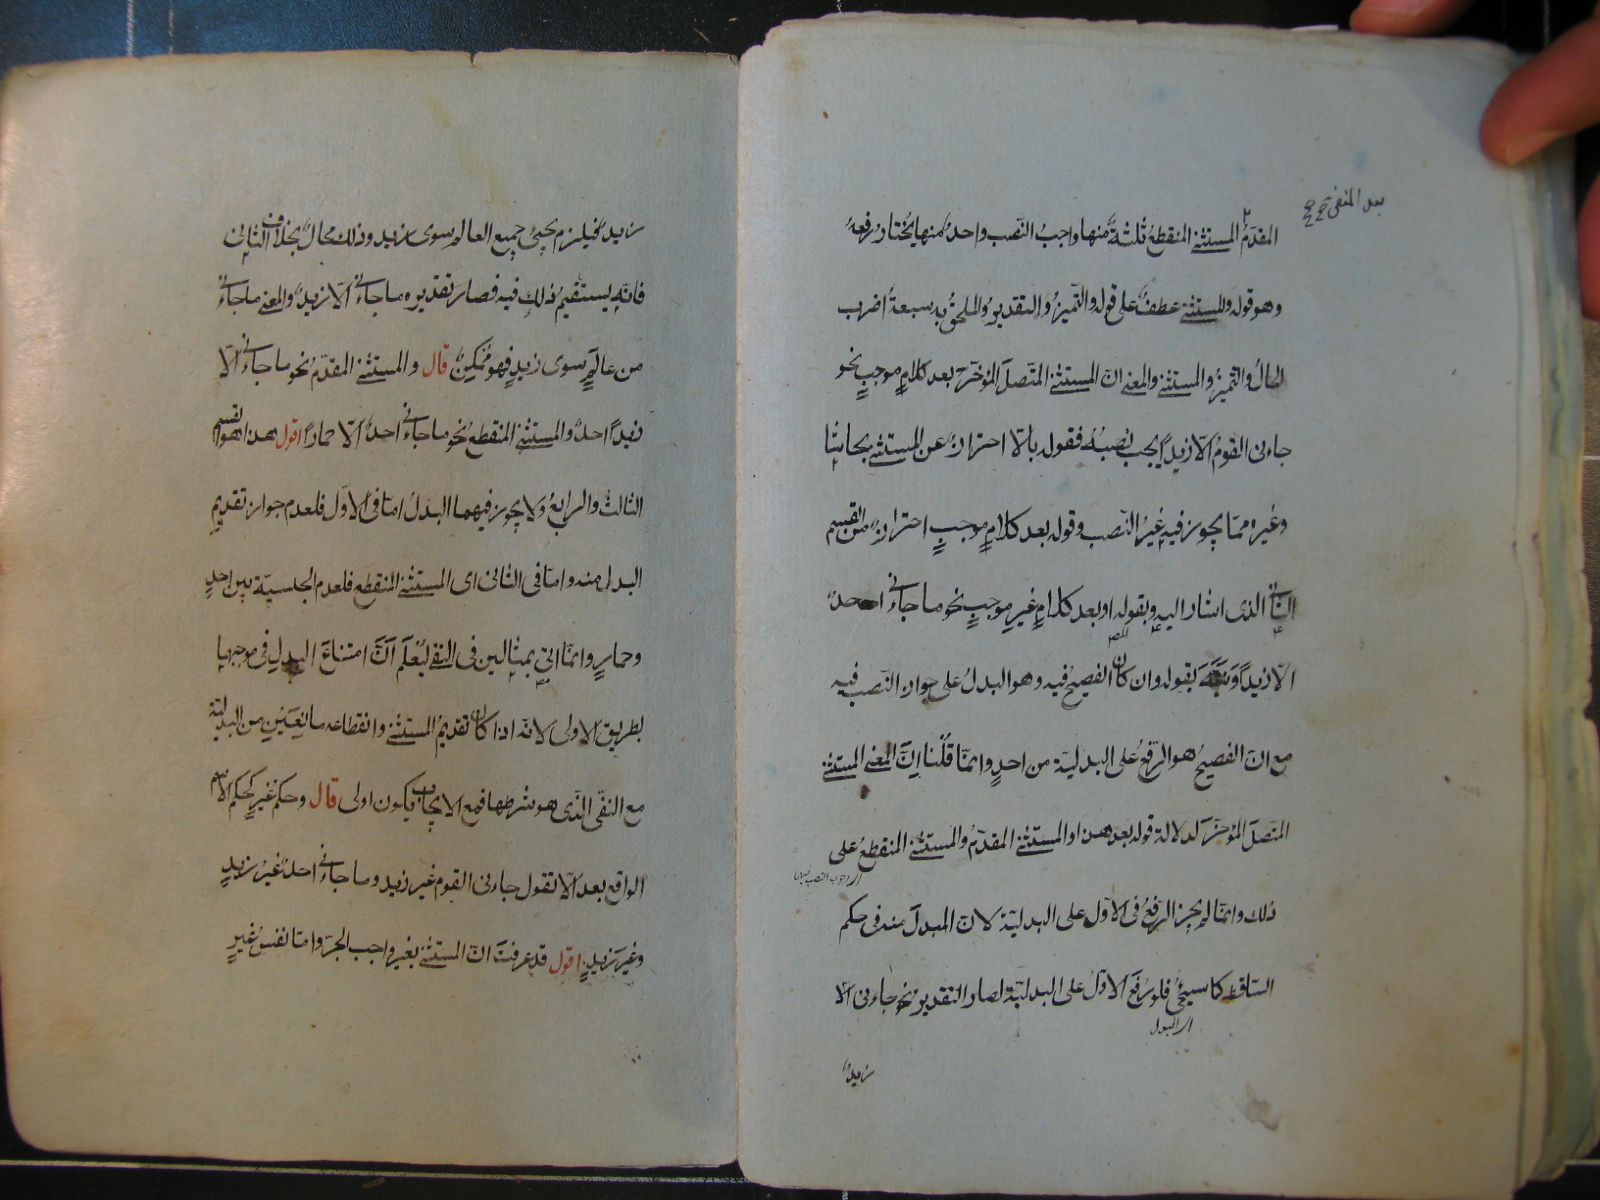 بعد المنفى صح صح
المقدمُ المستثنى المنقطعُ ثلثةٌ منها واجبُ النصب واحدٌ منها يُختارُ رفعهُ
وهو قوله والمستثنى عطفٌ على قوله والتميزُ والتقديرُ والملحقُ به سبعةُ اضرب
الحالُ والتميزُ والمستثنى والمعنى انّ المستثنى المتصلَ المؤخرَ بعد كلامٍ موجبٍ نحو
جاءنى القومُ الّا زيداً يجب نصبُهُ فقوله بالّا احترازٌ عن المستثنى بحاشا
وغيره ممّا يجوز فيه غيرُ النصب وقوله بعد كلامٍ موجبٍ احترازٌ من القسم
الثانى الذى اشار اليه بقوله او بعد كلامٍ غيرِ موجبٍ نحو ما جاءنى احدٌ
المصـ
الّا زيداً ونبّه بقوله وان كان الفصيحُ فيه وهو البدلُ على جواز النصب فيه
مع انّ الفصيحُ هو الرفعُ على البدلية من احدٍ وانّما قُلنا إنّ المعنى المستثنى
المتصلَ المؤخرَ لدلالة قوله بعد هذا والمستثنى المقدّمُ والمستثنى المنقطعُ على
اى وجوب النصب فيهما
ذلك وانّما لم يجز الرفعُ فى الاوّل على البدليّة لانّ المبدلَ منه فى حكم
السّاقط كما سيجئُ فلو رُفعَ الاوّلُ على البدليّة لصار التقديرُ نحو جاءنى الّا
اى البدل
زيدٌ
زيدٌ فيلزم يجئُ جميع العالم سوى زيدٍ وذلك محالٌ بخلاف الثانى
فانّه يستقيم ذلك فيه فصار تقديره ما جاءنى الّا زيدٌ والمعنى ما جاءنى
من عالمٍ سوى زيدٍ فهو مُمكِنٌ قال والمستثنى المقدّمُ نحو ما جاءنى الّا
زيداً احدٌ والمستثنى المنقطعُ نحو ما جاءنى احدٌ الّا حماراً اقول هذا هو القسم
الثالث والرابعُ ولا يجوز فيهما البدلُ امّا فى الاوّل فلعدم جواز تقديمِ
البدل منه وامّا فى الثانى اى المستثنى المنقطع فلعدم الجنسيّة بين احدٍ
وحمارٍ وانّما اتى بمثالين فى النفى ليُعلَم أنّ امتناعَ البدلِ فى موجبها
بطريق الاولى لانّه اذا كان تقديمُ المستثنى وانقطاعه مانعَيْنِ من البدليّة
مع النفى الذى هو شرطها فمع الايجاب يكون اولى قال وحكم غير كحكم الاسم
الواقع بعد الّا تقول جاءنى القوم غير زيد وما جاءنى احدٌ غيرُ زيدٍ
وغيرَ زيدٍ اقول قد عرفتَ انّ المستثنى بغير واجب الجرّ وامّا نفسُ غيرٍ